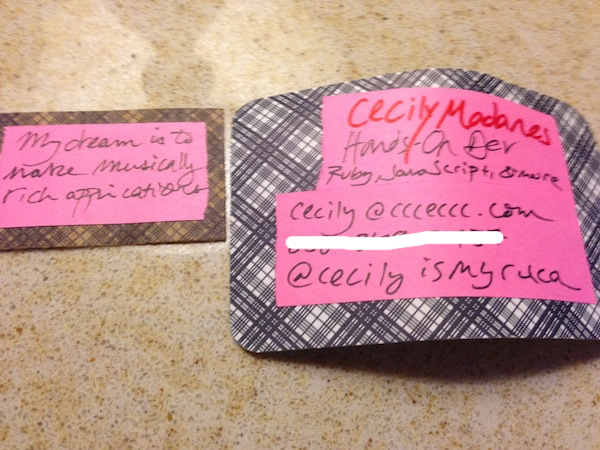 My dream is to
make musically
rich applications
Cecily Madanes
Hands-On Dev
Ruby, JavaScript, & more
cecily@ccceccc.com
@cecilyismyruca